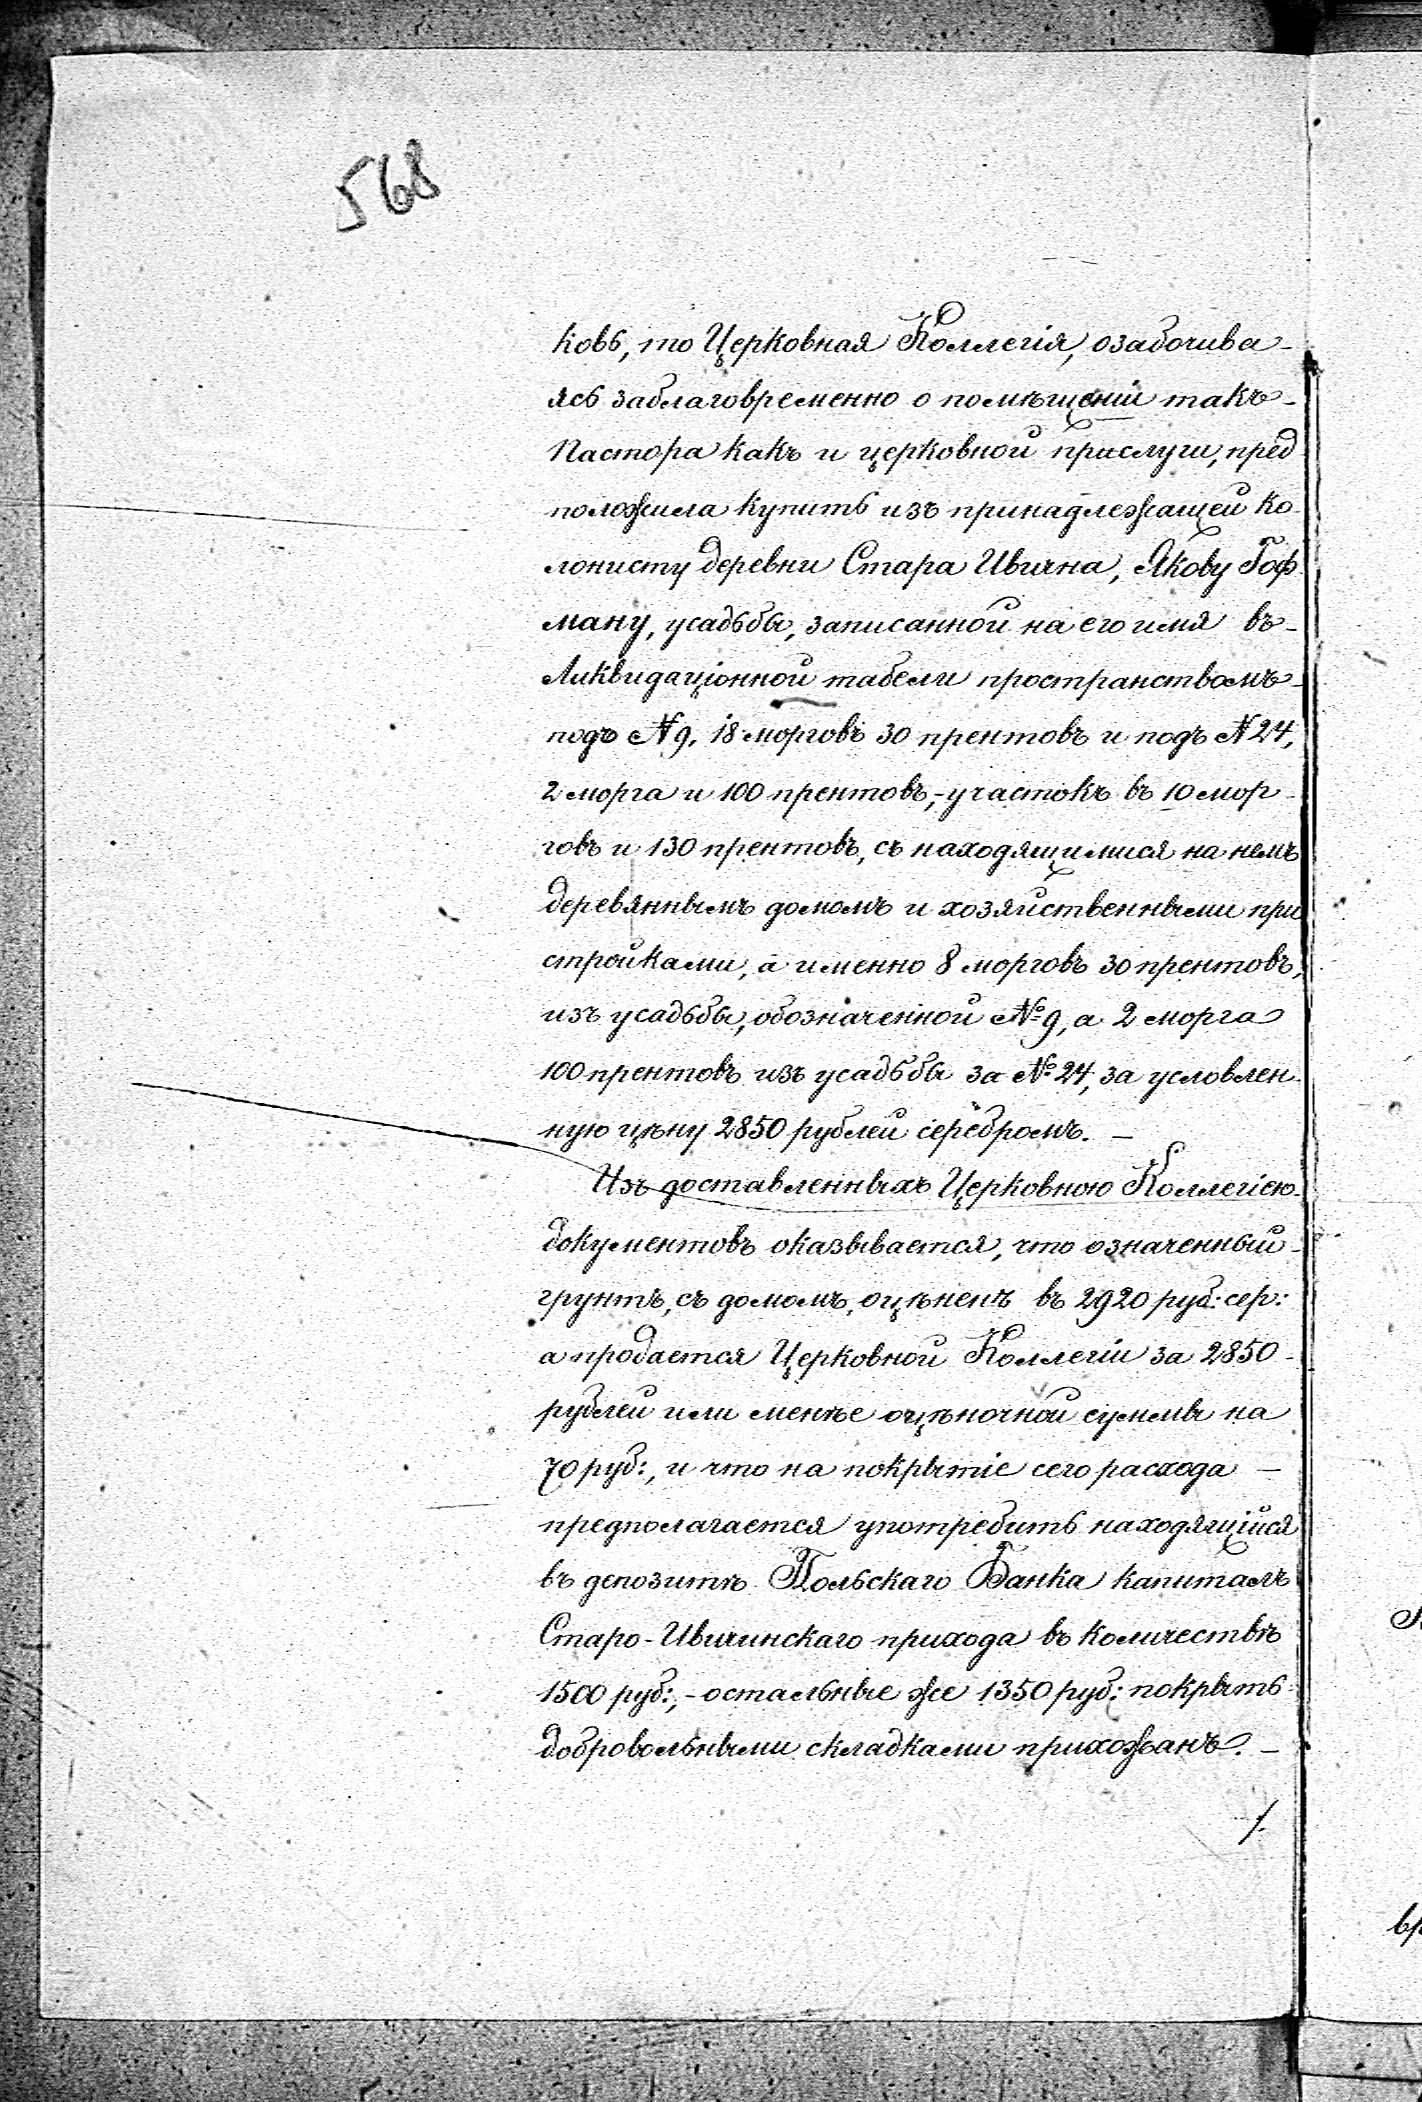 568
ковъ, то Церковная Коллегія, озабочива-
ясь заблаговременно о помѣщеніи такъ-
Пастора какъ и церковной прислуги, пред
положила купить изъ принадлежащей ко-
лонисту деревни Стара Ивична, Якову Гоф
ману, усадьбы, записанной на его имя въ-
Ликвидаціонной табели пространствомъ-
подъ № 9, 18 морговъ 30 прентовъ и подъ № 24,
2 морга и 100 прентовъ,-участокъ въ 10 мор-
говъ и 130 прентовъ, съ находящимися на немъ
деревяннымъ домомъ и хозяйственными при
стройками, а именно 8 морговъ 30 прентовъ,
изъ усадьбы, обозначенной № 9, а 2 морга
100 прентовъ изъ усадьбы за № 24, за условлен-
ную цѣну 2850 рублей серебромъ. —
Изъ доставленныхъ Церковною Коллегіею-
документовъ оказывается, что означенный-
грунтъ, съ домомъ, оцѣненъ въ 2920 руб: сер:
а продается Церковной Коллегіи за 2850-
рублей или менѣе оцѣночной суммы на
70 руб:, и что на покрытіе сего расхода —
предполагается употребить находящійся
въ депозитѣ Польскаго Банка капиталъ
Старо-Ивичинскаго прихода въ количествѣ
1500 руб:,- остальные же 1350 руб: покрыть-
добровольными складками прихожанъ. —
/.